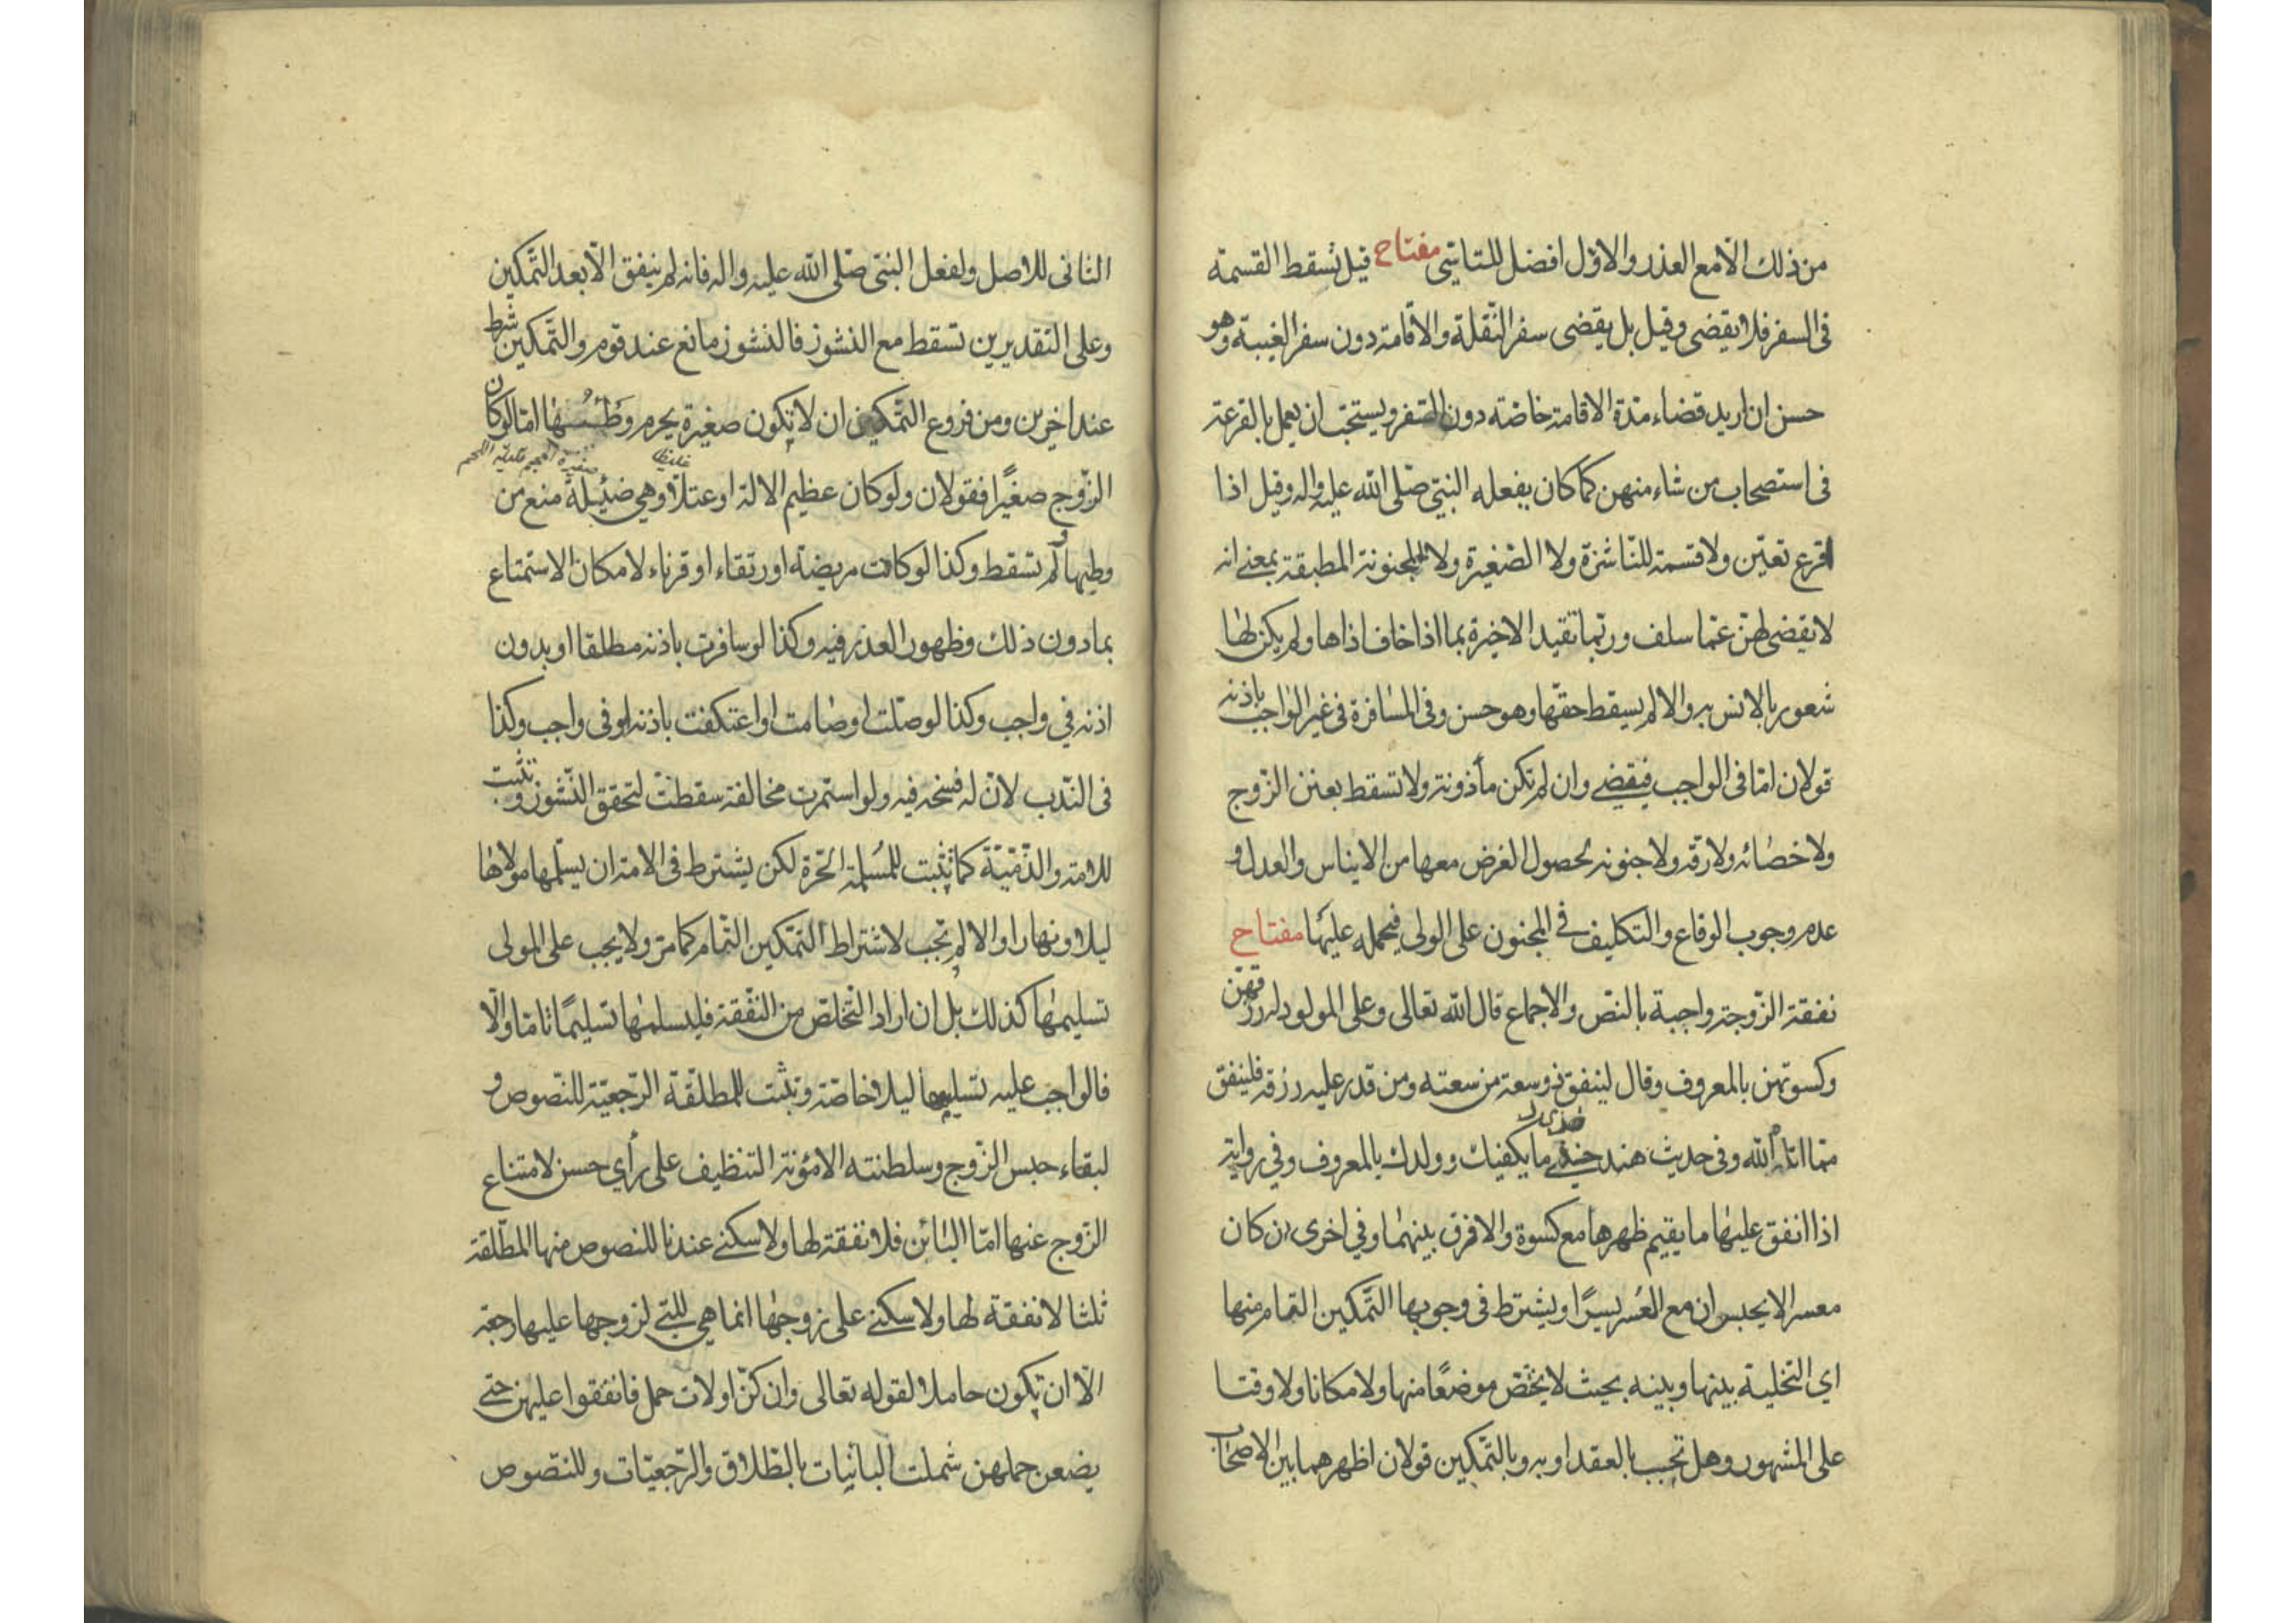 من ذلك الا مع العذر والاوّل افضل للتاسّي مفتاح قيل تسقط القسمة
فى السفر فلا يقضى وقيل بل يقضى سفر النّقلة والاقامة دون سفر الغيبة وهو
حسن ان اريد قضاء مدّة الاقامة خاصّة دون السّفر ويستحبّ ان يعمل بالقرعة
فى استصحاب من شاء منهن كما كان يفعله النبىّ صلّى الله عليه واله وقيل اذا
اقرع تعيّن ولا قسمة للنّاشزة ولا الصّغيرة ولا المجنونة المطبقة بمعنى انه
لا يقضى لهنّ عمّا سلف وربّما تقيد الاخيرة بما اذا خاف اذاها ولم يكن لها
شعور بالانس به والا لم يسقط حقّها وهو حسن وفى المسافرة فى غير الواجب باذنه
قولان امّا فى الواجب فيقضى وان لم تكن مأذونة ولا تسقط بعنن الزّوج
ولا خصائه ولا رقه ولا جنونه لحصول الغرض معها من الايناس والعدل و
عدم وجوب الوقاع والتكليف فى المجنون على الولى فيحمله عليها مفتاح
نفقة الزّوجة واجبة بالنصّ والاجماع قال الله تعالى وعلى المولود له رزقهنّ
وكسوتهن بالمعروف وقال لينفق ذو سعة من سعته ومن قدر عليه رزقه فلينفق
ممّا اتاه الله وفى حديث هند خذى ما يكفيك وولدك بالمعروف وفي رواية
اذا انفق عليها ما يقيم ظهرها مع كسوة والا فرق بينهما وفي اخرى ان كان
معسرا لا يحبس ان مع العُسر يسرًا ويشترط فى وجوبها التّمكين التّام منها
اي التخلية بينها وبينه بحيث لا يخصّ موضعًا منها ولا مكانا ولا وقتا
على المشهور وهل تجب بالعقد او به وبالتّمكين قولان اظهرهما بين الاصحاب
الثانى للاصل ولفعل النبىّ صلّى الله عليه واله فانه لم ينفق الّا بعد التّمكين
وعلى التقديرين تسقط مع النشوز فالنشوز مانع عند قوم والتّمكين شرط
عند اخرين ومن فروع التّمكين ان لا تكون صغيرة يحرم وَطْئُها امّا لو كان
غليظا صغيرة الجسم قليلة اللحم
الزّوج صغيرًا فقولان ولو كان عظيم الالة او عتلا وهي ضئيلة منع من
وطيها ولم تسقط وكذا لو كانت مريضة او رتقاء او قرناء لامكان الاستمتاع
بما دون ذلك وظهور العذر فيه وكذا لو سافرت باذنه مطلقا او بدون
اذنه في واجب وكذا لو صلّت او صامت او اعتكفت باذنه او فى واجب وكذا
فى النّدب لانّ له فسخه فيه ولو استمرت مخالفة سقطت لتحقق النّشوز وتثبت
للامة والذّميّة كما تثبت للمُسلمة الحرّة لكن يشترط فى الامة ان يسلّمها مولاها
ليلا ونهارا والا لم تجب لاشتراط التمكين التّام كما مرّ ولا يجب على المولى
تسليمها كذلك بل ان اراد التّخلصّ من النّفقة فليسلمها تسليمًا تامّا والّا
فالواجب عليه تسليمها ليلا خاصّة وتثبت للمطلّقة الرّجعيّة للنّصوص و
لبقاء حبس الزّوج وسلطنته الا مؤنة التنظيف على رأي حسن لامتناع
الزّوج عنها امّا البائن فلا نفقة لها ولا سكنى عندنا للنصوص منها المطلّقة
ثلثا لا نفقة لها ولا سكنى على زوجها انما هي للتي لزوجها عليها رجعة
الّا ان تكون حاملا لقوله تعالى وان كنّ اولات حمل فانفقوا عليهن حتى
يضعن حملهن شملت البائنات بالطّلاق والرّجعيّات وللنّصوص